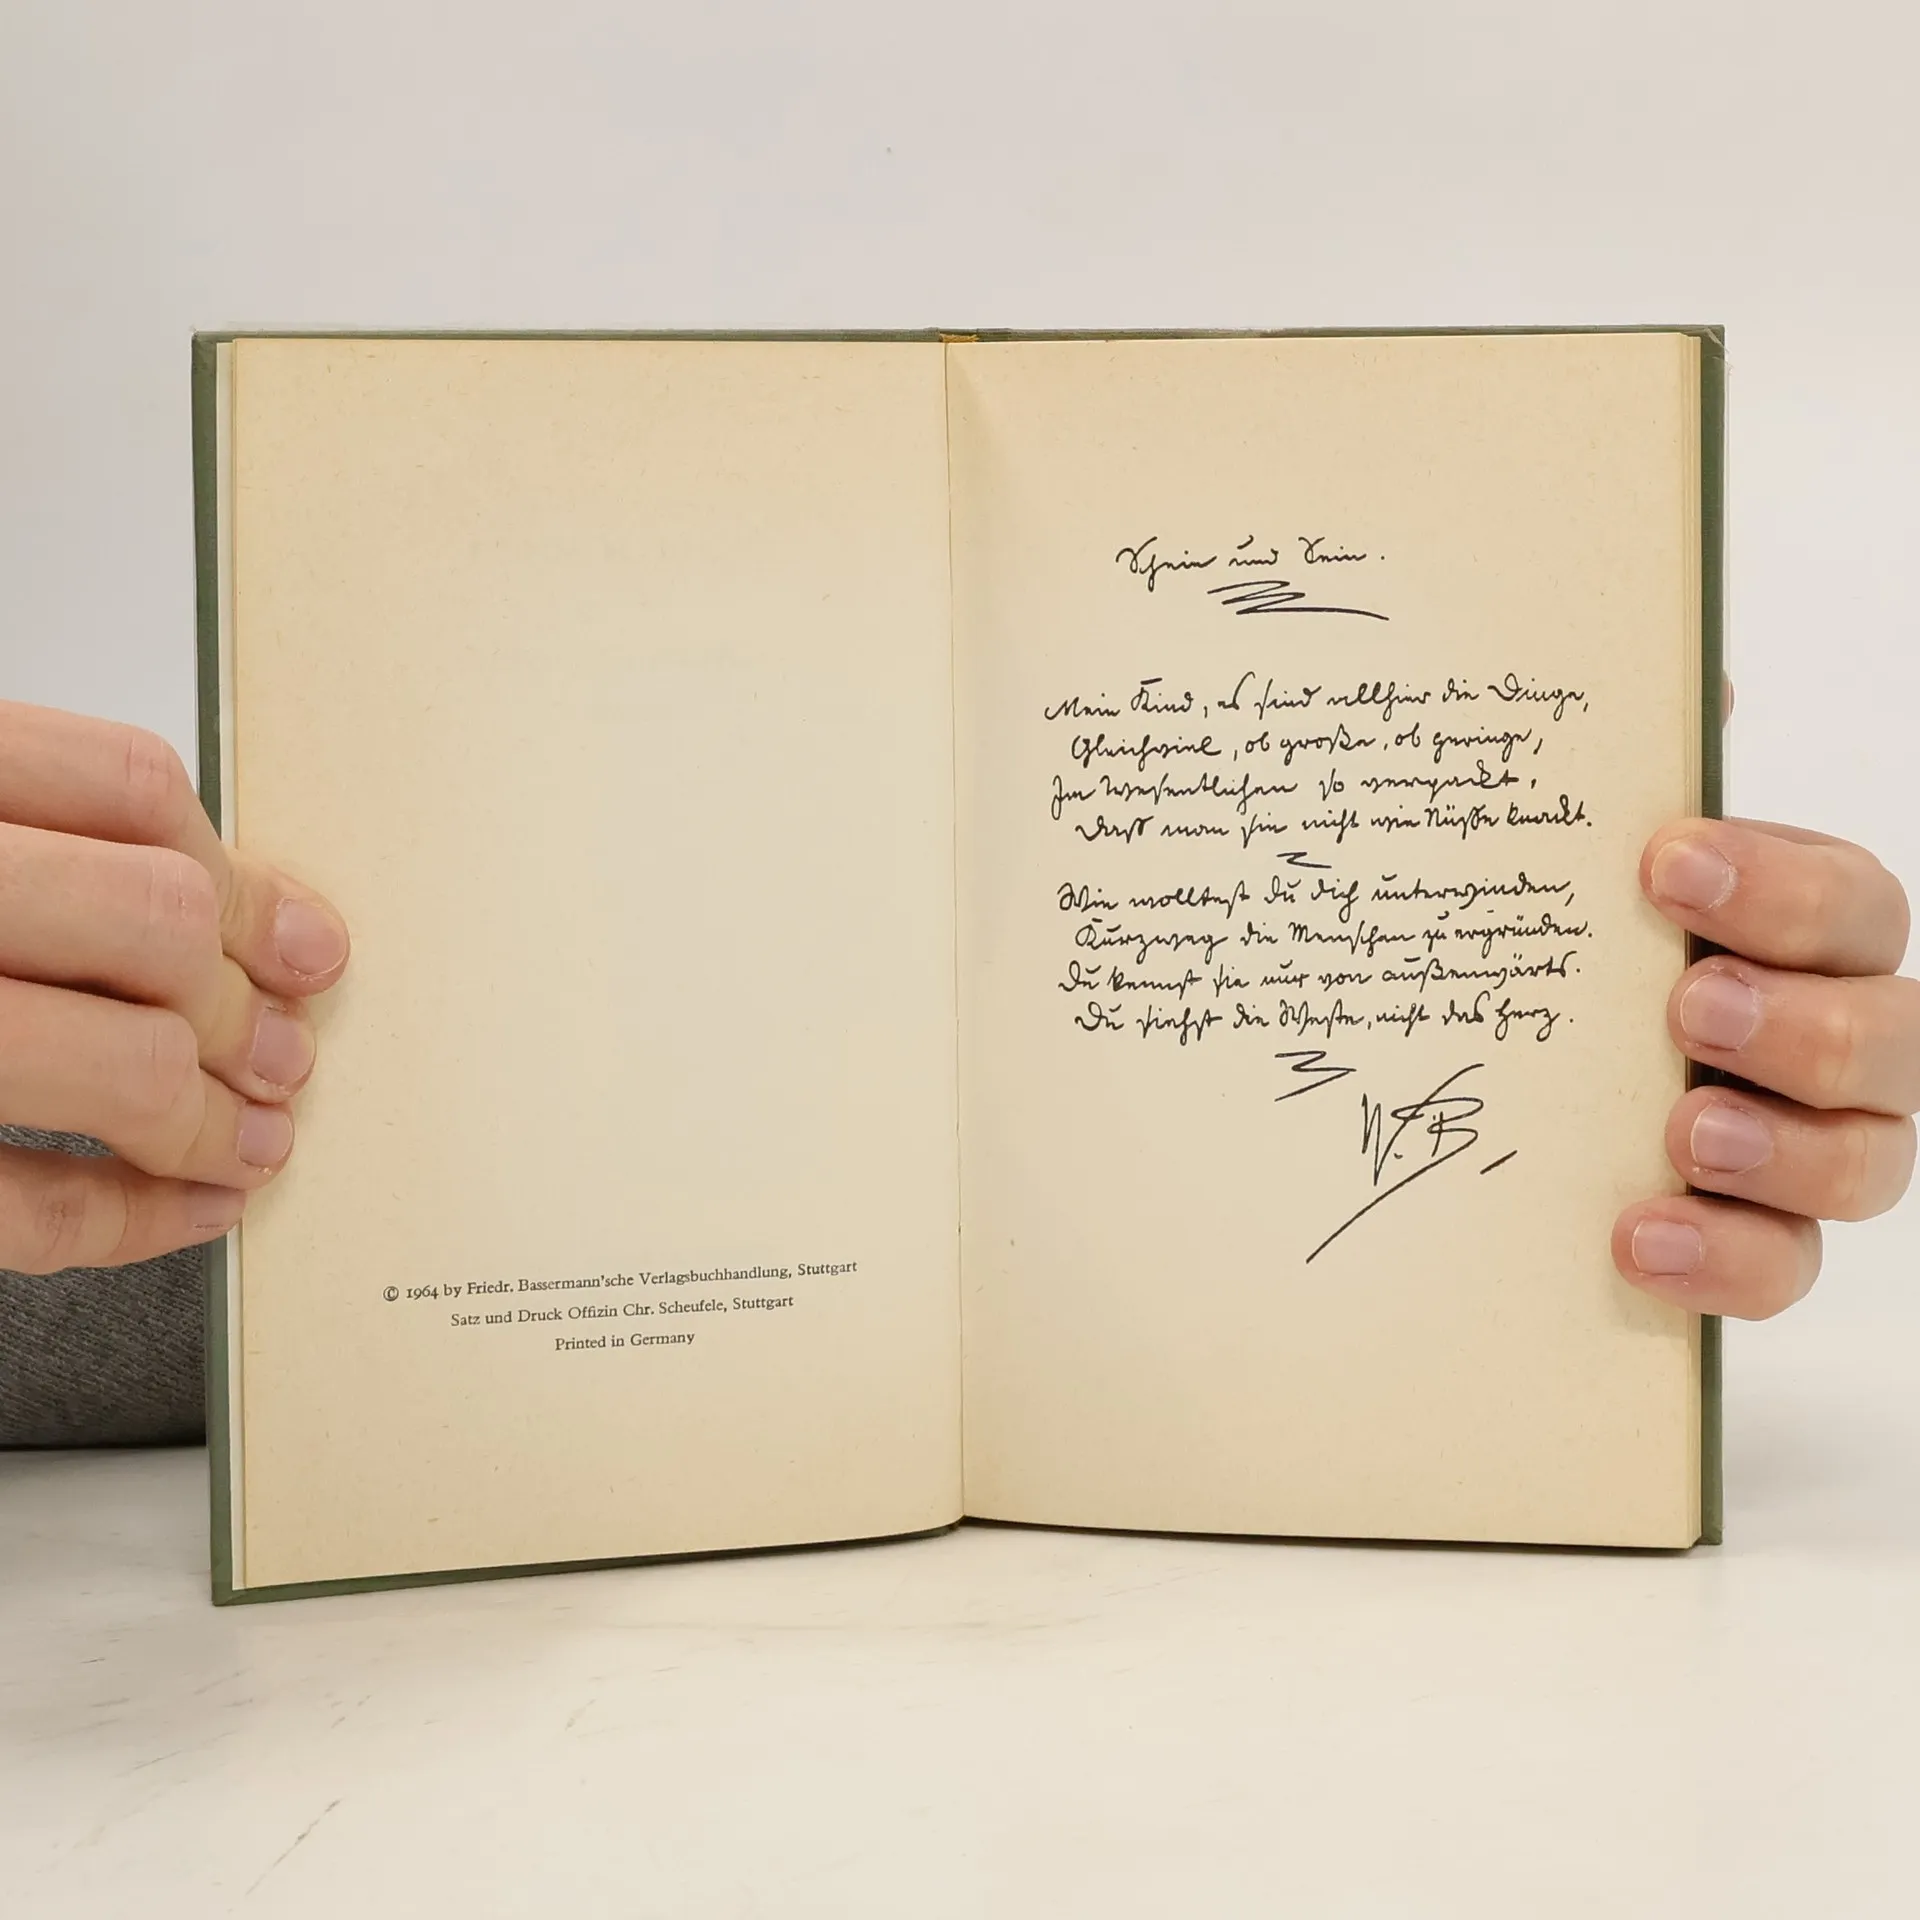 © 1964 by Friedr. Bassermann'sche Verlagsbuchhandlung, Stuttgart
Satz und Druck Offizin Chr. Scheufele, Stuttgart
Printed in Germany
Schein und Sein.
Mein Kind, es sind allhier die Dinge,
Gleichviel, ob große, ob geringe,
Im Wesentlichen so verpackt,
Daß man sie nicht wie Nüße knackt.
Wie wolltest du dich unterwinden,
Kurzweg die Menschen zu ergründen.
Du kennst sie nur von außenwärts.
Du siehst die Weste, nicht das Herz.
W. B.